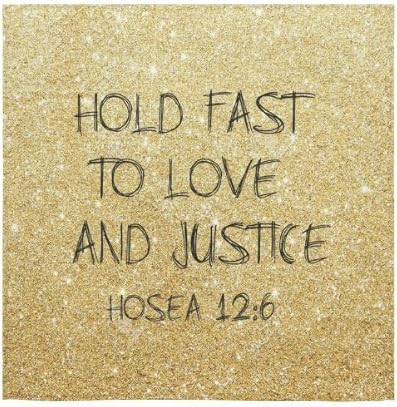 HOLD FAST
TO LOVE
AND JUSTICE
HOSEA 12:6